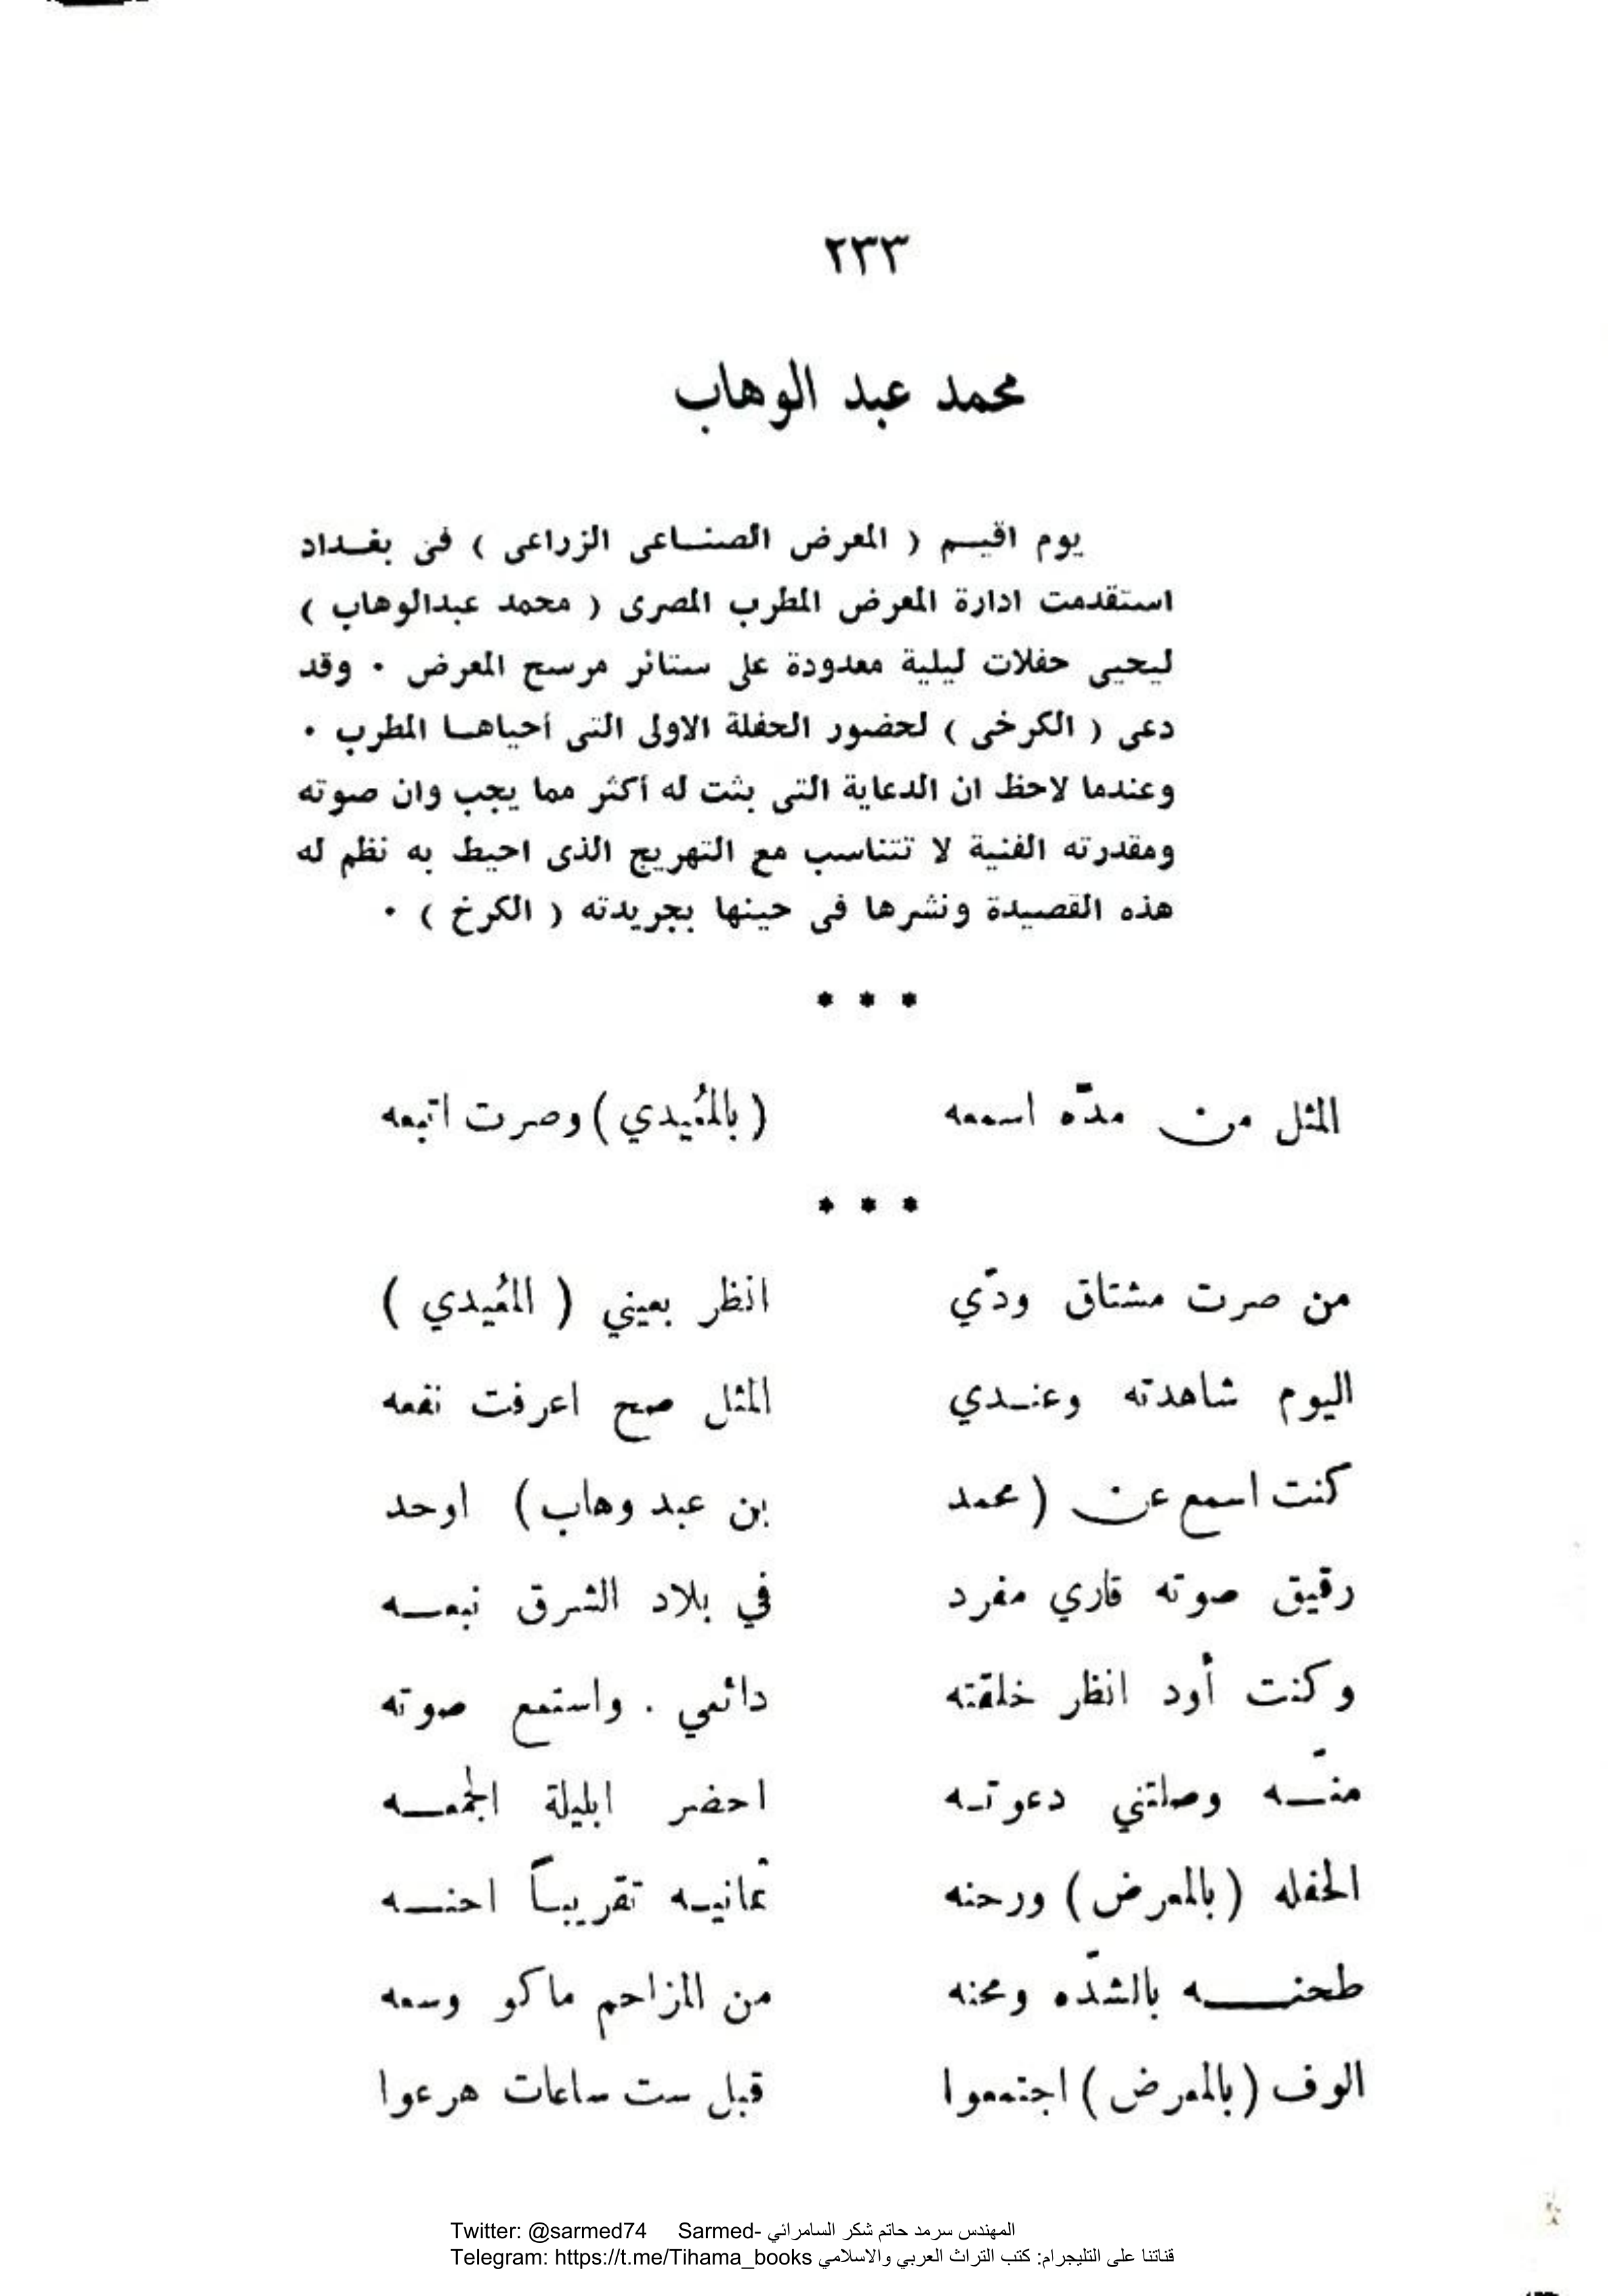 ٢٣٣
محمد عبد الوهاب
يوم اقيـم ( المعرض الصنـاعى الزراعى ) فى بغـداد
استقدمت ادارة المعرض المطرب المصرى ( محمد عبدالوهاب )
ليحيى حفلات ليلية معدودة على ستائر مرسح المعرض ٠ وقد
دعى ( الكرخى ) لحضور الحفلة الاولى التى أحياهـا المطرب ٠
وعندما لاحظ ان الدعاية التى بثت له أكثر مما يجب وان صوته
ومقدرته الفنية لا تتناسب مع التهريج الذى احيط به نظم له
هذه القصيدة ونشرها فى حينها بجريدته ( الكرخ ) ٠
* * *
المثل من مدّه اسمعه (بالمُعَيدي) وصرت اتبعه
* * *
من صرت مشتاق ودّي انظر بعيني ( المُعَيدي )
اليوم شاهدته وعنـدي المثل صح اعرفت نفعه
كنت اسمع عن (محمد بن عبد وهاب) اوحد
رقيق صوته قاري مفرد في بلاد الشرق نبعـه
وكنت أود انظر خلقته دائمي . واستمع صوته
منّـه وصلتني دعوتـه احضر ابليلة الجمعـه
الحفله (بالمعرض) ورحنه ثمانيـه تقريبـاً احنـه
طحنـــه بالشدّه ومحنه من المزاحم ماكو وسعه
الوف (بالمعرض) اجتمعوا قبل ست ساعات هرعوا
Twitter: @sarmed74 Sarmed- المهندس سرمد حاتم شكر السامرائي
Telegram: https://t.me/Tihama_books قناتنا على التليجرام: كتب التراث العربي والاسلامي